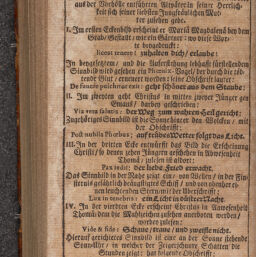 aus der Vorhölle entführten Altvätern seiner Herrlich-
keit sich seiner liebsten Jungfräulichen Mut-
ter zusehen gebe.
I. Im ersten Eckenbild erscheinet er Mariä Magdalenä bey dem
Grab/ Gestalt wie ein Gärtner; wo diese Wor-
te beygedruckt:
zuhalten dich/ erlaube:
In beygesetztem/ und die Auferstehung lebhafft fürstellendem
Sinnbild wird gesehen ein Phoenix-Vogel/ der durch die
tende Glut/ erneuret worden; seine Obschrifft lautet:
De funere pulchrior exit: geht schöner aus dem Staube:
II. Im zweyten geht Christus in mitten zweyer Jünger gen
Emaus/ darbey geschrieben:
Via vera salutis: der Weg zum wahren Heil gereicht:
Zugehöriges Sinnbild ist die Sonne hinter den Wolcken/ mit
der Obschrifft:
Post nubila Phœbus: auf trübes Wetter folgt das Licht.
III. In der dritten Ecke entwürfft das Bild die Erscheinung
Christi/ so denen zehen Jüngern geschehen in Abwesenheit
Thomä/ zulesen ist alldort:
Pax redit: der liebe Fried erwacht.
Das Sinnbild in der Nähe zeigt ein von Wehen/ in der Fin-
sternis gefährlich beängstigtes Schiff/ und den
nen leuchtenden Stern mit der Uberschrifft:
Lux in tenebris: ein Licht in düstrer Nacht.
IV. In der vierdten Ecke erscheint Christus in Anwesenheit
Thomä/ dem die Wahlzeichen zusehen anerboten werden/
worbey zulesen:
Vide & fide: Schaue/ traue/ und zweiffle nicht.
Hierauf gerichtetes Sinnbild ist eine an der Sonne stehende
Sonn-Uhr/ in welcher der Zeigerschatten die
Stunden zeigt: hat folgende Obschrifft: